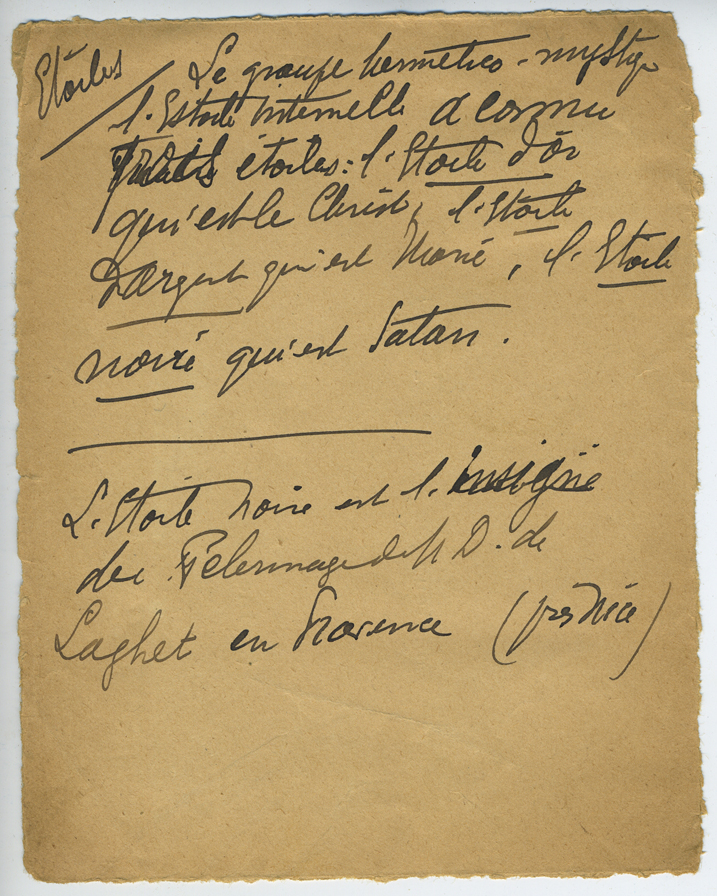 Etoiles
Le groupe hermetico-mystiq
l'Estoile Internelle a connu
trois étoiles: l'Etoile d'or
qui est le Christ, l'Etoile
D'argent qui est Marie, l'Etoile
noire qui est Satan.
L'Etoile noire est l'insigne
du Pelerinage de N D. de
Laghet en Provence (près Nice)